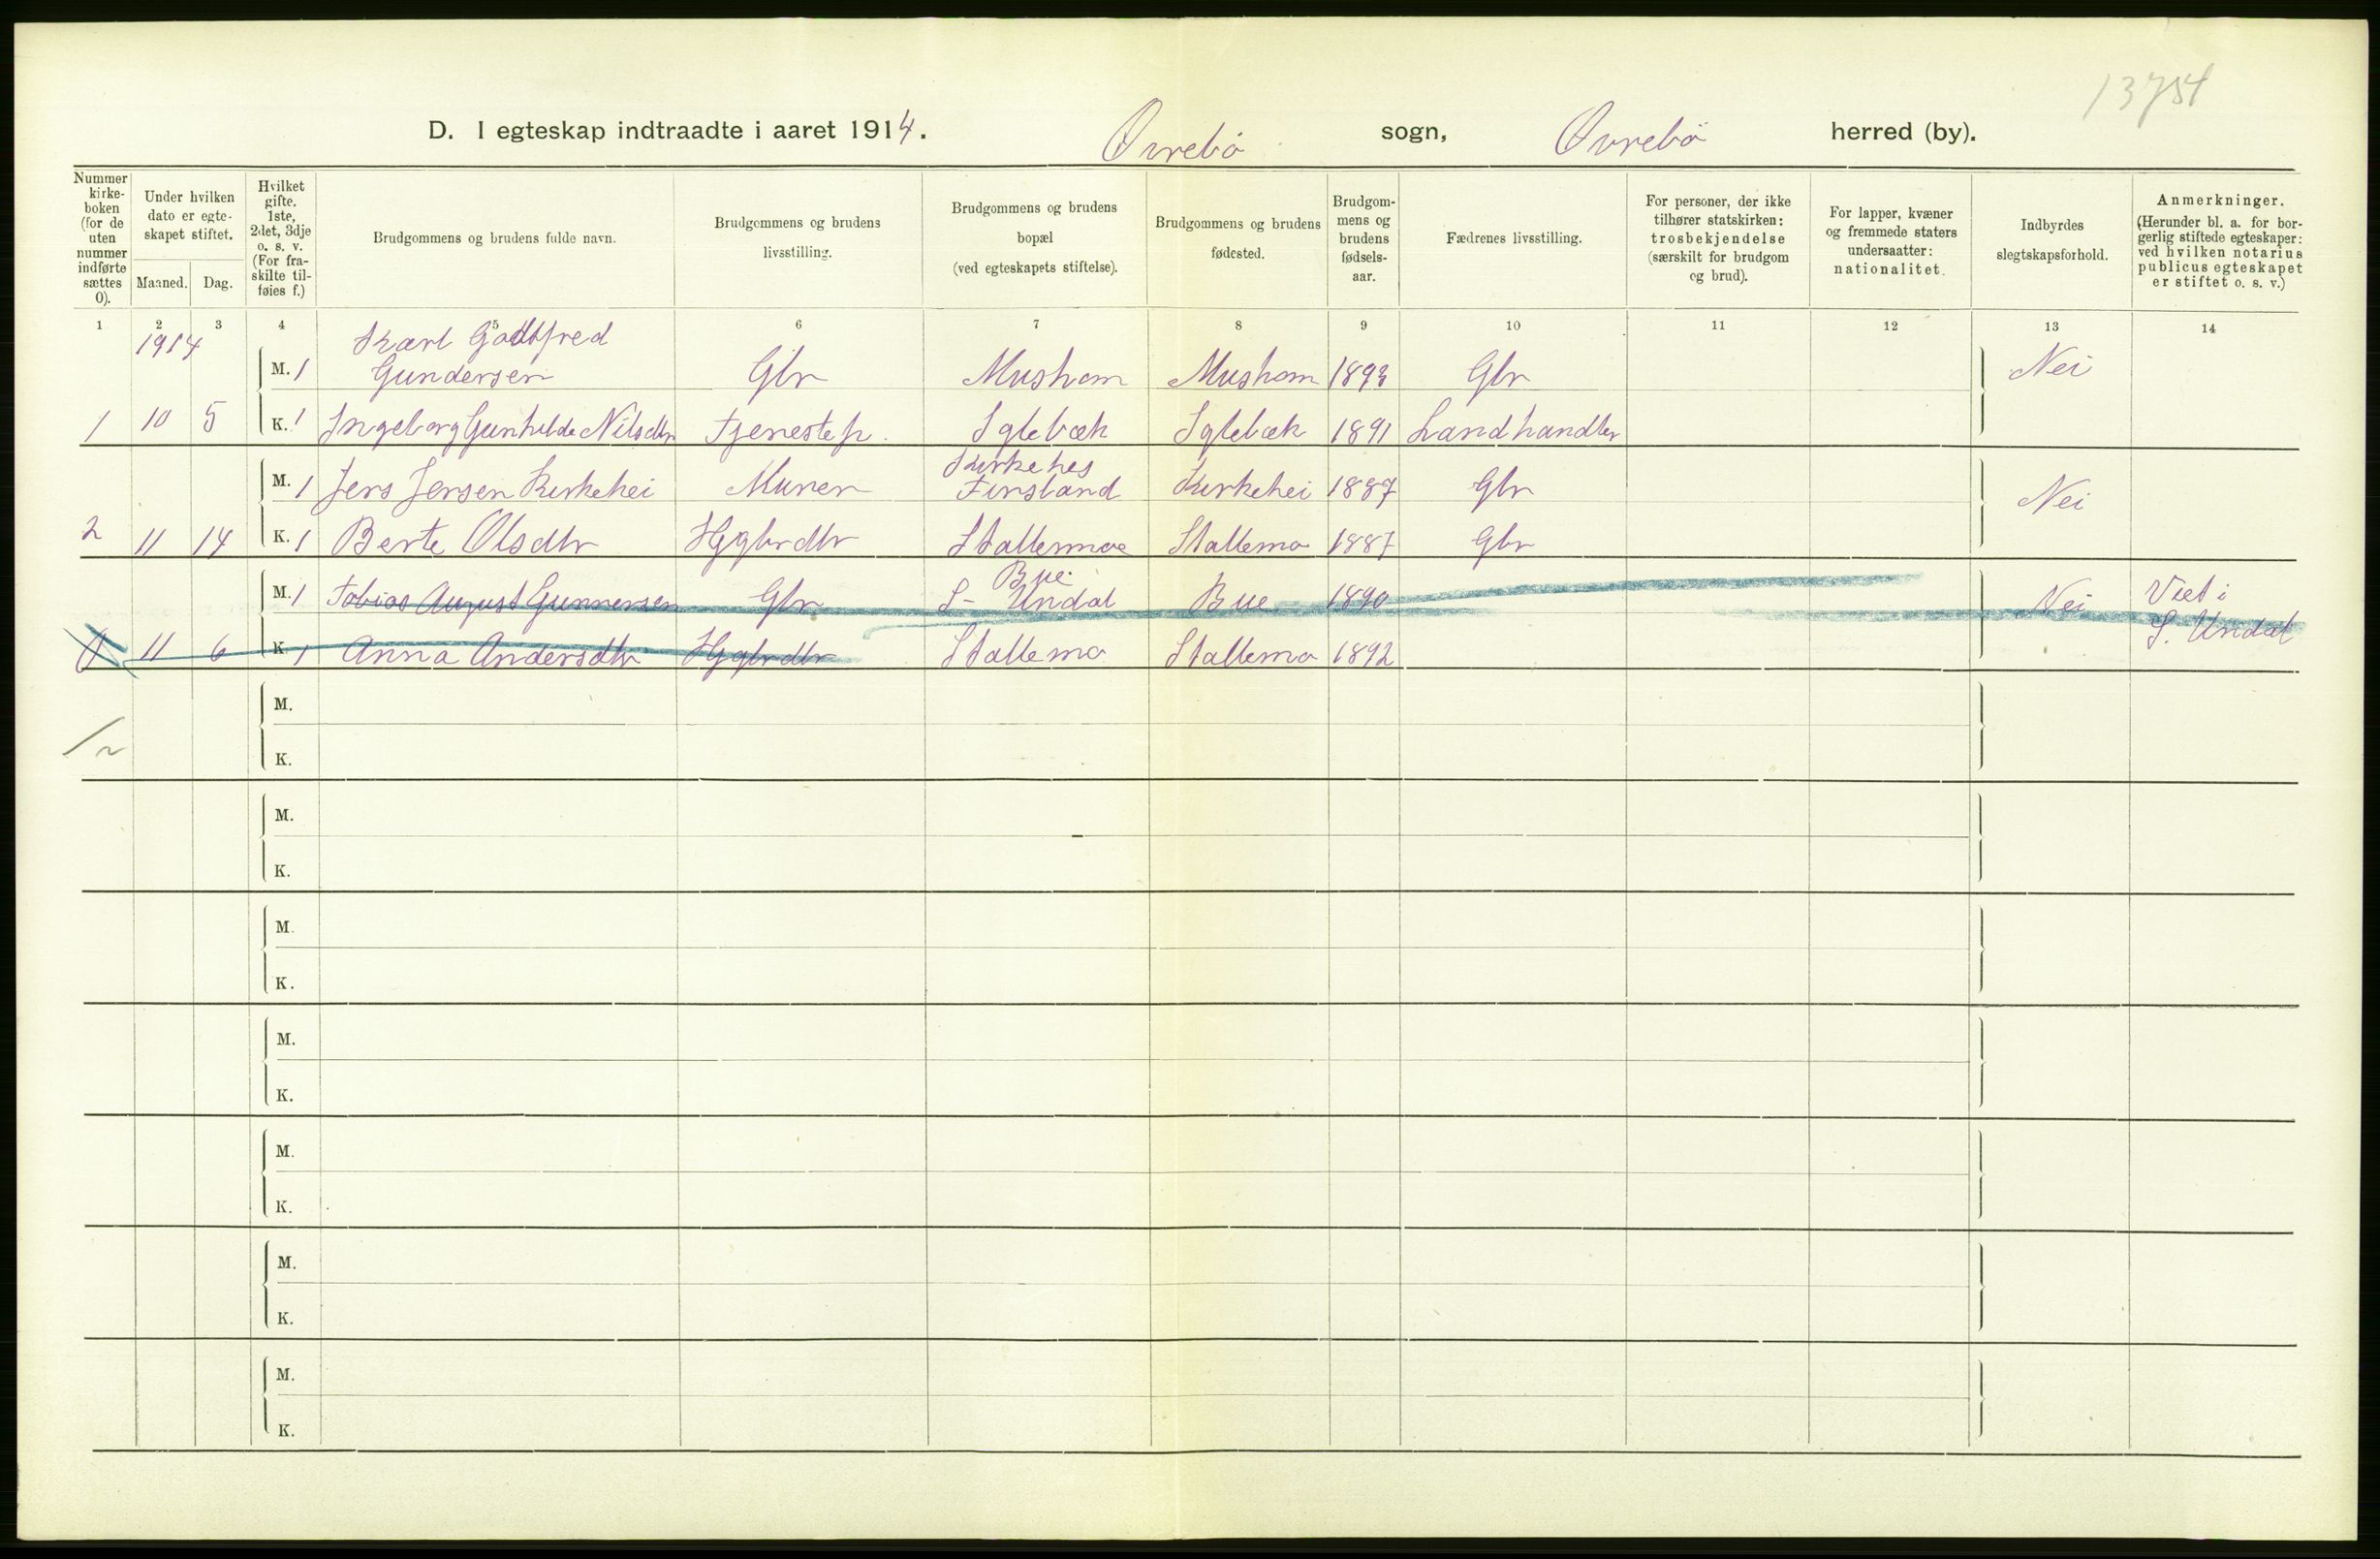 13754
D. I egteskap indtraadte i aaret 1914. Øvrebö sogn, Øvrebö herred (by).
Nummer kirke-boken (for de uten nummer indførte sættes 0).
Under hvilken dato er egte-skapet stiftet.
Maaned. Dag.
Hvilket gifte. 1ste, 2det, 3dje o. s. v. (For fra-skilte til-føies f.)
Brudgommens og brudens fulde navn.
Brudgommens og brudens livsstilling.
Brudgommens og brudens bopæl (ved egteskapets stiftelse).
Brudgommens og brudens fødested.
Brudgom-mens og brudens fødsels-aar.
Fædrenes livsstilling.
For personer, der ikke tilhører statskirken: trosbekjendelse (særskilt for brudgom og brud).
For lapper, kvæner og fremmede staters undersaatter: nationalitet.
Indbyrdes slegtskapsforhold.
Anmerkninger. (Herunder bl. a. for bor-gerlig stiftede egteskaper: ved hvilken notarius publicus egteskapet er stiftet o. s. v.)
1 2 3 4 5 6 7 8 9 10 11 12 13 14
1914 Karl Godtfred
M. 1 Gundersen Gbr Mushom Mushom 1893 Gbr Nei
1 10 5 K. 1 Ingeborg Gunhilde Nilsdtr Tjenestep. Iglebæk Iglebæk 1891 Landhandler
Kirkehei
M. 1 Jens Jensen Kirkehei Murer Finsland Kirkehei 1887 Gbr Nei
2 11 14 K. 1 Berte Olsdtr Hjgbrdtr Stallemoe Stallemo 1887 Gbr
Bue
M. 1 Tobias August Gunnersen Gbr S- Undal Bue 1890 Nei Viet i
S. Undal
11 6 K. 1 Anna Andersdtr Hjgbrdtr Stallemo Stallemo 1892
M.
/2
K.
M.
K.
M.
K.
M.
K.
M.
K.
M.
K.
M.
K.